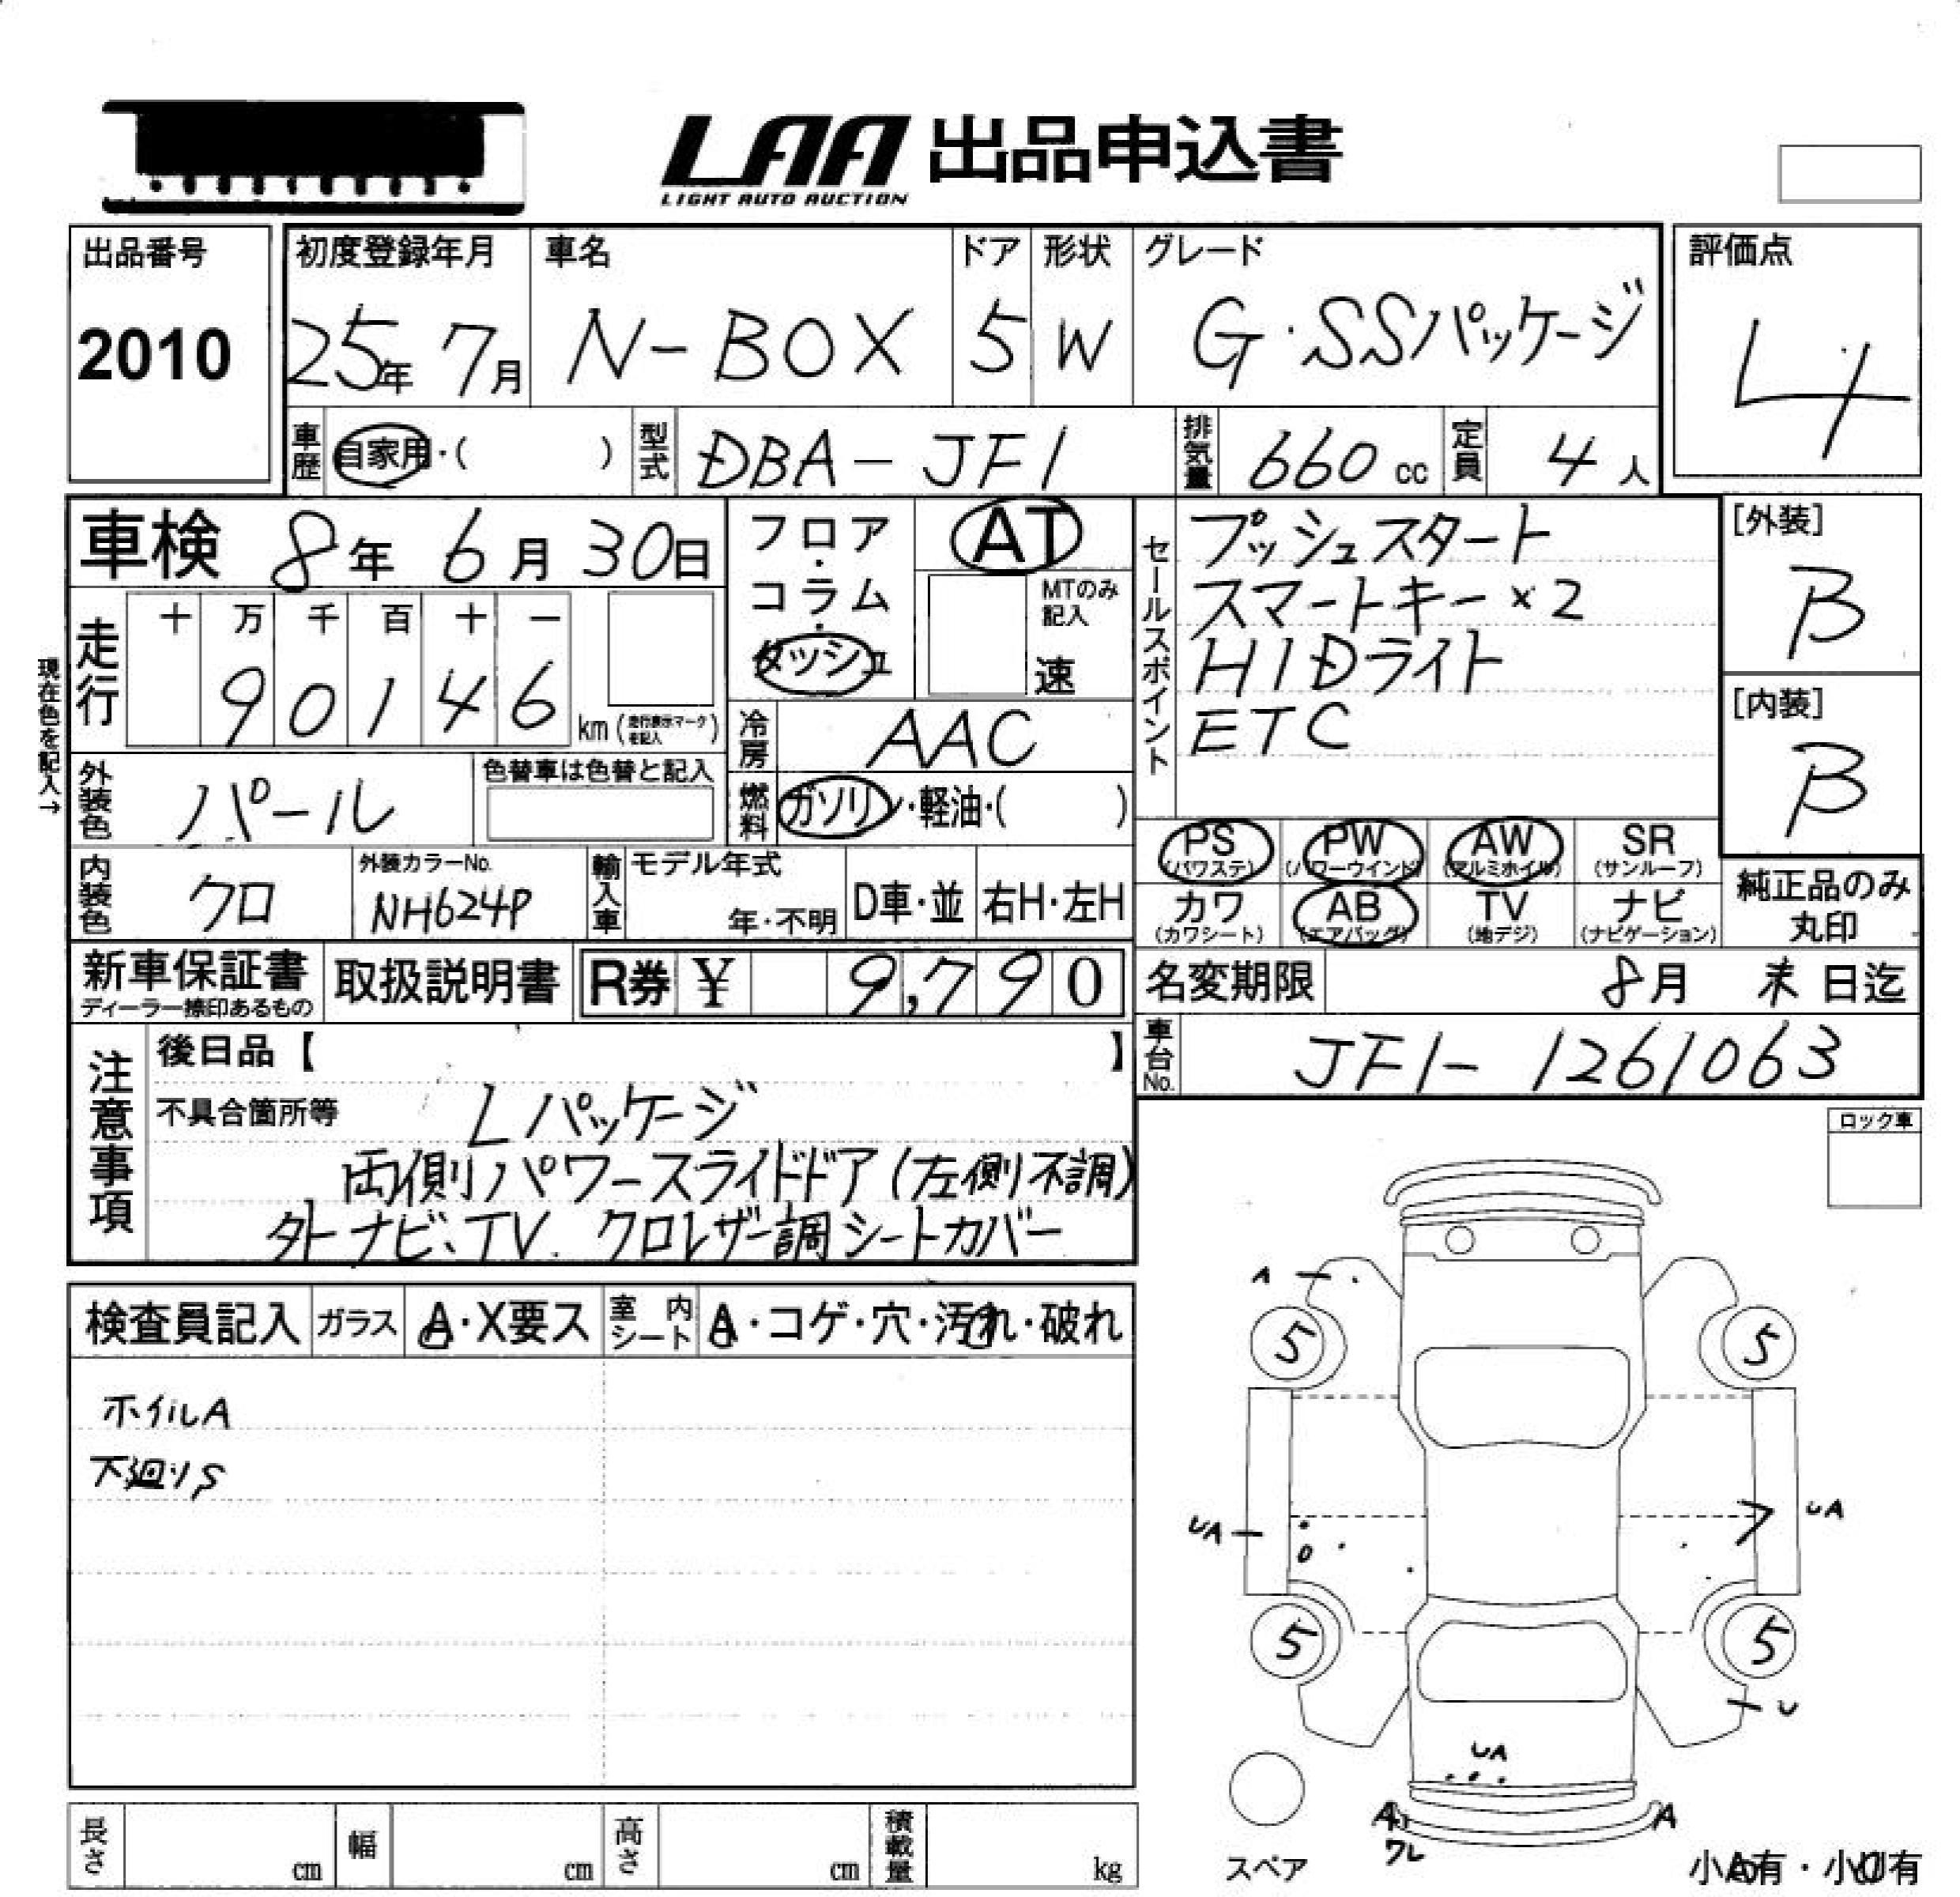 LAA 出品申込書
LIGHT AUTO AUCTION
出品番号
2010
初度登録年月 車名 ドア 形状 グレード
25年 7月 N-BOX 5 W G・SSパッケージ
評価点
4
車歴 自家用・( ) 型式 DBA-JF1 排気量 660 cc 定員 4人
車検 8年 6月 30日
フロア・コラム・ダッシュ
AT
MTのみ記入
速
セールスポイント
プッシュスタート
スマートキー×2
HIDライト
ETC
[外装]
B
[内装]
B
現在色を記入→
走行
十 万 千 百 十 一
9 0 1 4 6
km (走行表示マークを記入)
冷房 AAC
外装色 パール 色替車は色替と記入
燃料 ガソリン・軽油・( )
PS PW AW SR
(パワステ) (パワーウインド) (アルミホイル) (サンルーフ)
カワ AB TV ナビ
(カワシート) (エアバッグ) (地デジ) (ナビゲーション)
純正品のみ
丸印
内装色 クロ 外装カラーNo. NH624P
輸入車 モデル年式 年・不明 D車・並 右H・左H
新車保証書 取扱説明書 R券 ¥ 9,790
ディーラー捺印あるもの
名変期限 8月 末日迄
車台No. JF1-1261063
注意事項
後日品【 】
不具合箇所等 Lパッケージ
両側パワースライドドア(左側不調)
外ナビ、TV. クロレザー調シートカバー
ロック車
検査員記入 ガラス A・X要ス 室内シート A・コゲ・穴・汚れ・破れ
ホイルA
下廻りS
A
5 5
UA UA
5 5
U
UA
A A
ワレ
スペア
小A有・小U有
長さ cm 幅 cm 高さ cm 積載量 kg